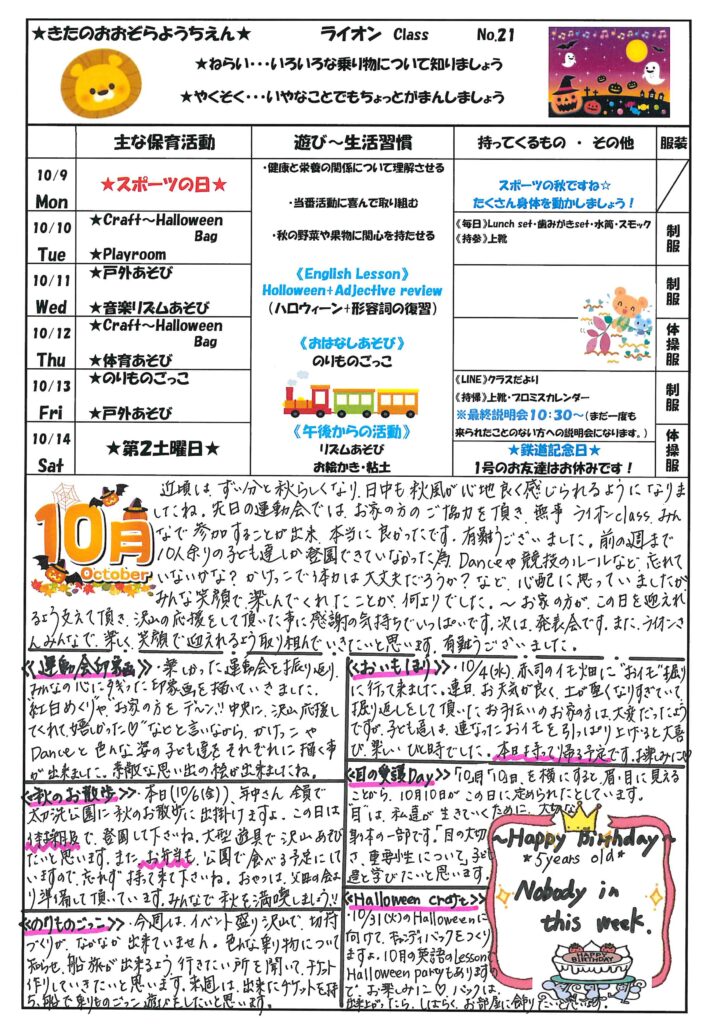 ★きたのおおぞらようちえん★ ライオン Class No.21
★ねらい・・・いろいろな乗り物について知りましょう
★やくそく・・・いやなことでもちょっとがまんしましょう
主な保育活動 遊び～生活習慣 持ってくるもの ・ その他 服装
10/9
Mon
★スポーツの日★
・健康と栄養の関係について理解させる
・当番活動に喜んで取り組む
・秋の野菜や果物に関心を持たせる
スポーツの秋ですね☆
たくさん身体を動かしましょう！
10/10
Tue
★Craft～Halloween
Bag
★Playroom
《毎日》Lunch set・歯みがきset・水筒・スモック
《持参》上靴
制服
10/11
Wed
★戸外あそび
★音楽リズムあそび
《English Lesson》
Holloween+Adjective review
（ハロウィーン+形容詞の復習）
制服
10/12
Thu
★Craft～Halloween
Bag
★体育あそび
《おはなしあそび》
のりものごっこ
体操服
10/13
Fri
★のりものごっこ
★戸外あそび
《LINE》クラスだより
《持帰》上靴・プロミスカレンダー
※最終説明会１０：３０～（まだ一度も
来られたことのない方への説明会になります。）
制服
10/14
Sat
★第２土曜日★
《午後からの活動》
リズムあそび
お絵かき・粘土
★鉄道記念日★
１号のお友達はお休みです！
体操服
10月
October
近頃は、ずい分と秋らしくなり、日中も秋風が心地良く感じられるようになりま
したね。先日の運動会では、お家の方のご協力を頂き、無事 ライオンclass、みん
なで参加することが出来、本当に良かったです。有難うございました。前の週まで
10人余りの子ども達しか登園できていなかった為、Danceや競技のルールなど、忘れて
いないかな？かけっこで1本めは大丈夫だろうか？など、心配に思っていましたが
みんな笑顔で、楽しんでくれたことが、何よりでした。～お家の方が、この日を迎えれ
るよう支えて頂き、沢山の応援をして頂いた事に感謝の気持ちでいっぱいです。次は、発表会です。また、ライオンさ
んみんなで、楽しく、笑顔で迎えれるよう取り組んでいきたいと思います。有難うございました。
《運動会印象画》・楽しかった運動会を振り返り、
みんなの心に残った印象画を描いていきました。
"紅白めくり"や、お家の方を デーン!!中央に、沢山応援し
てくれて嬉しかった♡"などと言いながら、かけっこや
Danceと色んな姿の子ども達を、それぞれに描く事
が出来ました。素敵な思い出の絵が出来ましたね。
《秋のお散歩》・本日(10/6(金))、年中さん全員で
太刀洗公園に秋のお散歩に出掛けますよ。この日は
体操服で、登園して下さいね。大型遊具で沢山あそび
たいと思います。また、お弁当も、公園で食べる予定にして
いますので、忘れず持って来て下さいね。おやつは、父母の会よ
り準備して頂いています。みんなで秋を満喫しましょう!!
《のりものごっこ》・今週は、イベント盛り沢山で、切符
づくりが、なかなか出来ていません。色んな乗り物について
知らせ、船旅が出来るよう 行きたい所を聞いて、チケット
作りしていきたいと思います。来週は、出来たチケットを持
ち、船で乗りものごっこ遊びをしたいと思います。
《おいもほり》・10/4(水)、赤司のイモ畑に"おイモ"掘り
に行って来ました。連日、お天気が良く、土が硬くなりすぎていて、
掘り返しをして頂いた お手伝いのお家の方は、大変だったよう
ですが、子ども達は、連なったおイモを引っぱり上げると大喜
び、楽しいひと時でした。本日、持って帰る予定です。お楽しみに♡
《目の愛護Day》・「10月「10日」を横にすると、眉・目に見える
ことから、10月10日が、この日に定められたとしています。
「目」は、私達が、生きていくために、大切な
身体の一部です。「目の大切
さ、重要性について、子ども
達と学びたいと思います。
《Halloween craft》
・10/31(火)のHalloweenに
向けて、キャンディバックをつくり
ますよ。10月の英語のLessonで
Halloween partyもありますの
で、お楽しみに♡ バックは、
出来上がったら、しばらく、お部屋に飾りたいと思います。
～Happy Birthday～
*5years old*
Nobody in
this week.
HAPPY
BIRTHDAY